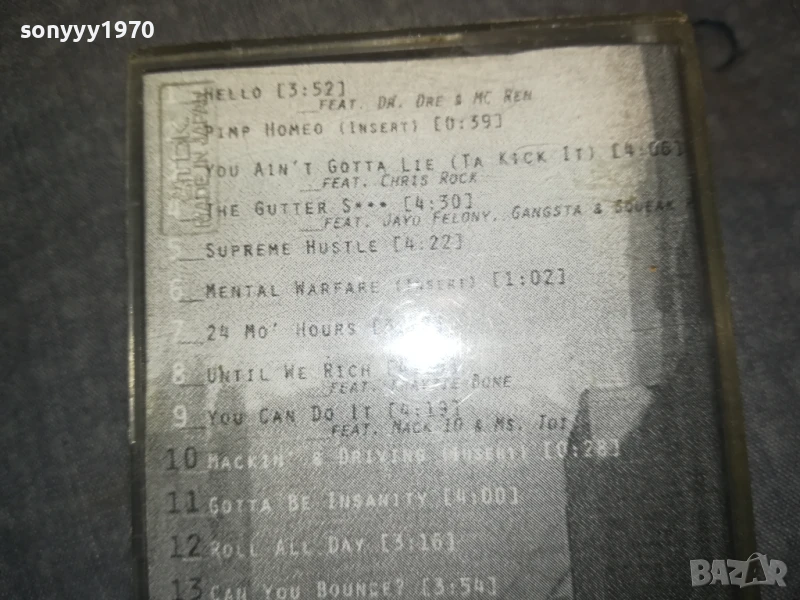 sonyyy1970
1 HELLO [3:52]
FEAT. DR. DRE & MC REN
PIMP HOMEO (INSERT) [0:39]
YOU AIN'T GOTTA LIE (TA KICK IT) [4:06]
FEAT. CHRIS ROCK
THE GUTTER S*** [4:30]
FEAT. JAYO FELONY, GANGSTA & SQUEAK
5 SUPREME HUSTLE [4:22]
6 MENTAL WARFARE (INSERT) [1:02]
7 24 MO' HOURS
8 UNTIL WE RICH
FEAT. KRAYZIE BONE
9 YOU CAN DO IT [4:19]
FEAT. MACK 10 & MS. TOI
10 MACKIN' & DRIVING (INSERT) [0:28]
11 GOTTA BE INSANITY [4:00]
12 ROLL ALL DAY [3:16]
13 CAN YOU BOUNCE? [3:54]
MADE IN JAPAN
BAZAR